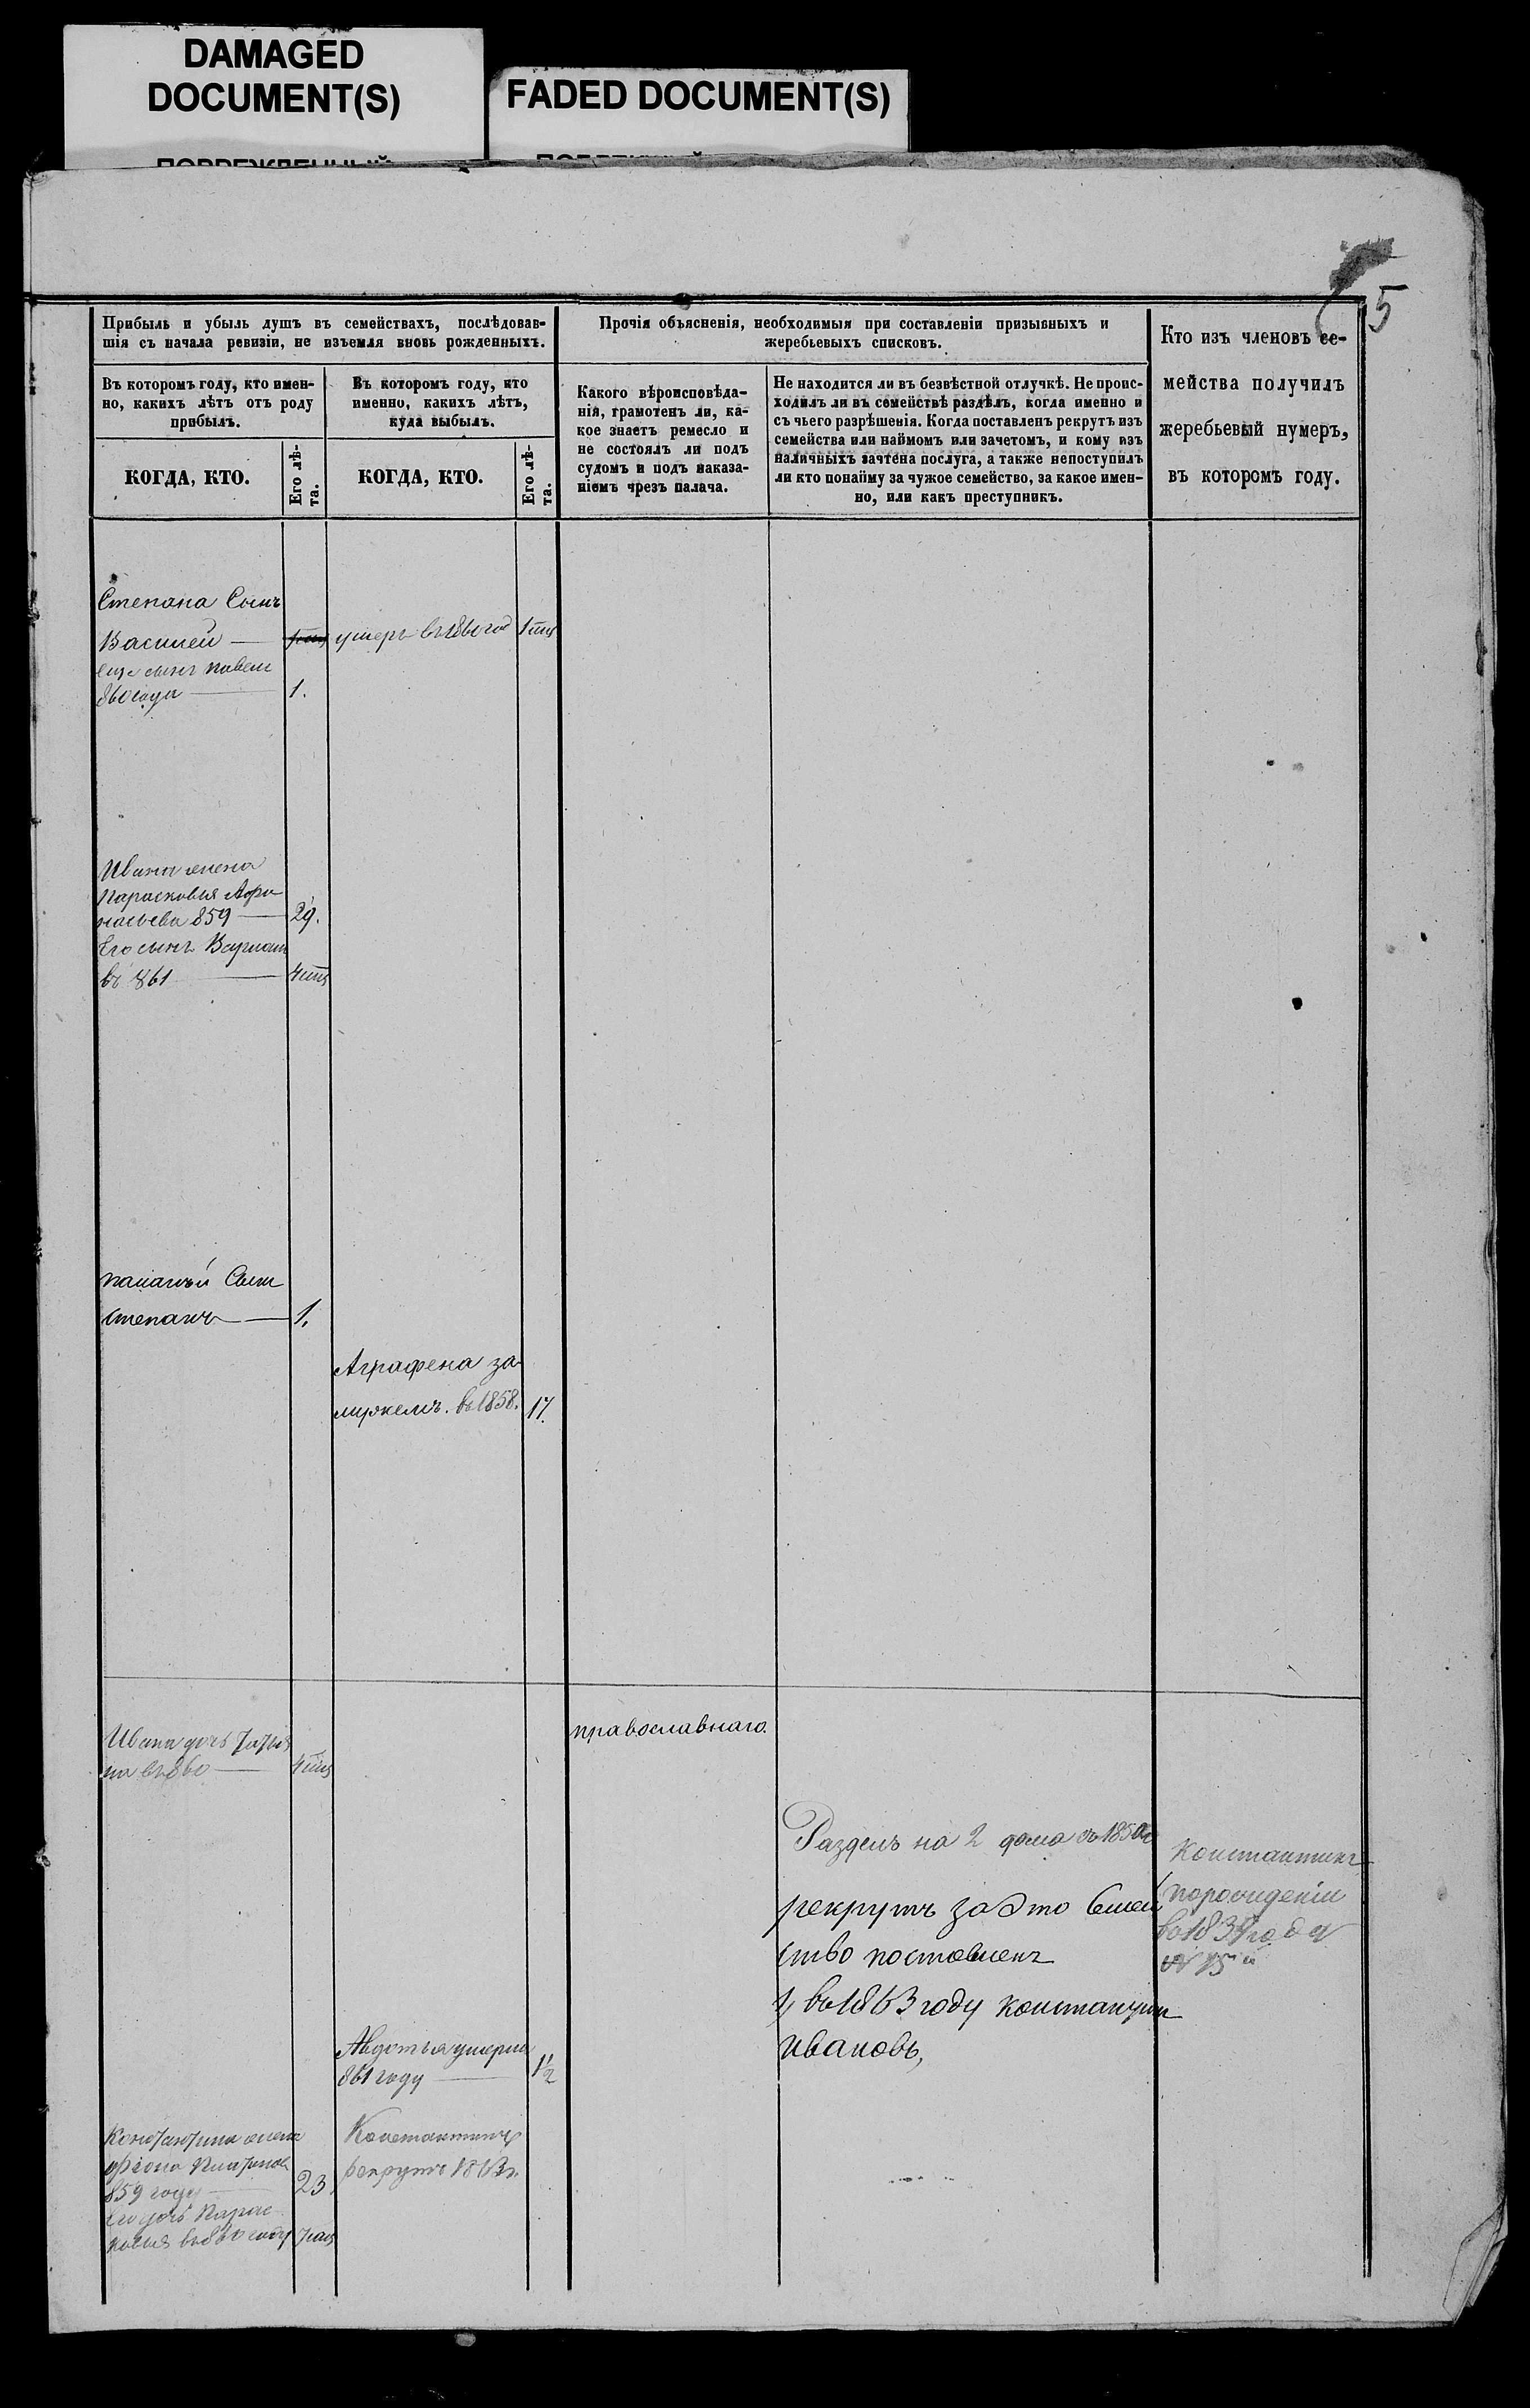 DAMAGED
DOCUMENT(S)
FADED DOCUMENT(S)
5
Прибыль и убыль душъ въ семействахъ, послѣдовав-
шія съ начала ревизіи, не изъемля вновь рожденныхъ.
Прочія объясненія, необходимыя при составленіи призывныхъ и
жеребьевыхъ списковъ.
Кто изъ членовъ се-
мейства получилъ
жеребьевый нумеръ,
въ которомъ году.
Въ которомъ году, кто имен-
но, какихъ лѣтъ отъ роду
прибылъ.
Въ которомъ году, кто
именно, какихъ лѣтъ,
куда выбылъ.
Какого вѣроисповѣда-
нія, грамотенъ ли, ка-
кое знаетъ ремесло и
не состоялъ ли подъ
судомъ и подъ наказа-
ніемъ чрезъ палача.
Не находится ли въ безвѣстной отлучкѣ. Не проис-
ходилъ ли въ семействѣ раздѣлъ, когда именно и
съ чьего разрѣшенія. Когда поставленъ рекрутъ изъ
семейства или наймомъ или зачетомъ, и кому изъ
наличныхъ зачтена послуга, а также непоступилъ
ли кто понайму за чужое семейство, за какое имен-
но, или какъ преступникъ.
КОГДА, КТО.
Его лѣ-
та.
КОГДА, КТО.
Его лѣ-
та.
Степана Сынъ
Василей
умеръ
еще сынъ павелъ
860 года 1.
Ивана жена
Парасковья Афа
насьева 859 29.
Его сынъ
въ 861
Сынъ
степанъ 1.
Аграфена за
мужемъ. въ 1858. 17.
Ивана дочь
на въ 860
православнаго.
Разделъ на 2 дома
рекрутъ за это Семей
ство поставленъ
въ 1863 году константин
ивановъ,
Константинъ
Авдотья умерла
861 году 1 1/2
Константина жена
859 году 23.
Его дочь Парас
ковья
Константинъ
рекрутъ 1863 г.